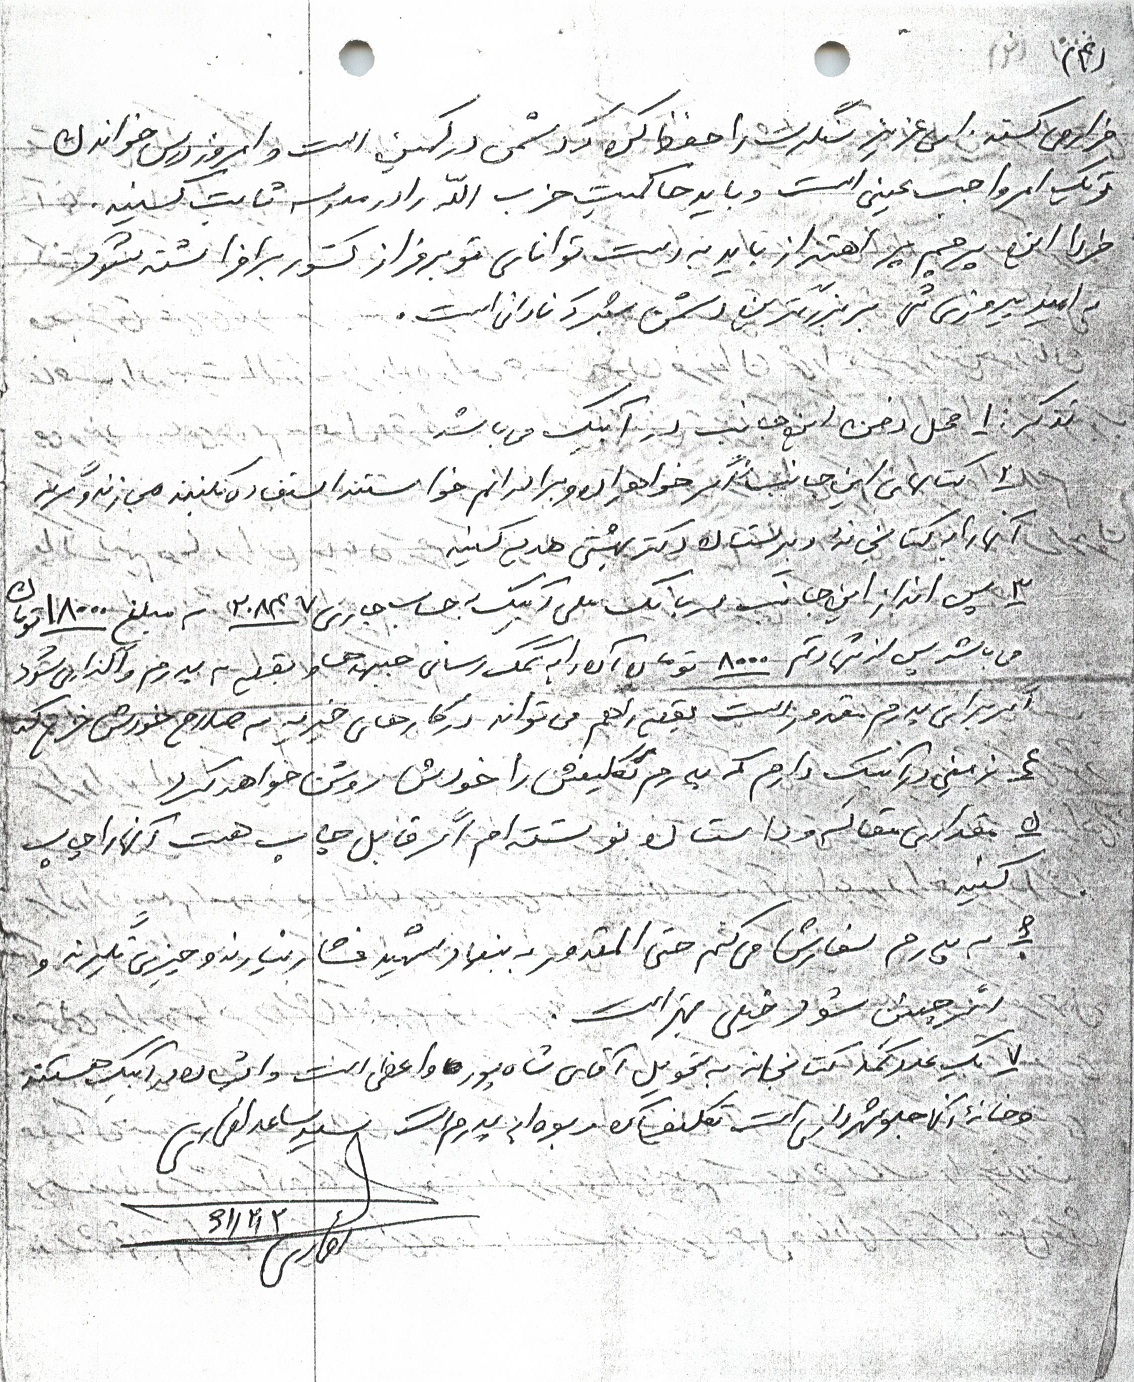 (۴)
فرار می کنند. ای عزیز سنگرت را حفظ کن که دشمن در کمین است و امروز درس خواندن
تو یک امر واجب عینی است و باید حاکمیت حزب الله را در مدرسه ثابت کنید.
فردا این پرچم پر اهتزاز باید به دست توانای تو بر فراز کشور برافراشته شود
به امید پیروزی بر بزرگترین دشمن بشر که نادانی است.
تذکر: ۱ـ محل دفن این جانب در آبیک می باشد
۲ـ کتابهای این جانب اگر خواهران و برادرانم خواستند استفاده بکنند و گرنه
آنها را به کتابخانه دبیرستان دکتر بهشتی هدیه کنید
۳ـ پس انداز این جانب در بانک ملی آبیک به حساب جاری به مبلغ ۱۸۰۰۰ تومان
می باشد پس از شهادتم ۸۰۰۰ تومان آن را به کمک رسانی جبهه ها و بقیه به پدرم واگذار می شود
اگر برای پدرم مقدور است بقیه را هم می تواند در کارهای خیریه به صلاح خودش خرج کند
۴ـ زمینی در آبیک دارم که پدرم تکلیفش را خودش روشن خواهد کرد
۵ـ مقداری مقاله و داستان نوشته ام اگر قابل چاپ هست آنها را چاپ
کنید.
۶ـ به پدرم سفارش می کنم حتی المقدور به بنیاد شهید فشار نیاورند و چیزی نگیرند و
اگر چنین شود خیلی بهتر است.
۷ـ یک عدد کمد کتابخانه به تحویل آقای شاه پور واعظی است و ایشان در آبیک هستند
و خانه آنها جلو شهرداری است تکلیف آن بر پدرم است سید ساعد
۶۱/۲/۲